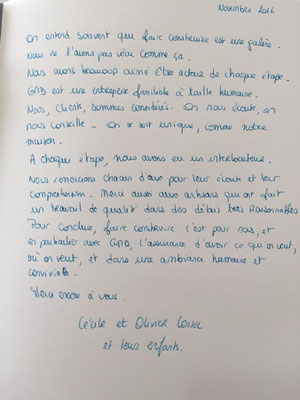 Novembre 2016
On entend souvent que faire construire est une galère.
Nous ne l'avons pas vécu comme ça.
Nous avons beaucoup aimé être acteur de chaque étape.
GND est une entreprise familiale à taille humaine.
Nous, clients, sommes considérés. On nous écoute, on
nous conseille - On se sent unique, comme notre
maison.
A chaque étape, nous avons eu un interlocuteur.
Nous remercions chacun d'eux pour leur écoute et leur
compréhension. Merci aussi aux artisans qui ont fait
un travail de qualité dans des délais très raisonnables
Pour conclure, faire construire c'est pour nous, et
en particulier avec GND, l'assurance d'avoir ce qu'on veut,
où on veut, et dans une ambiance humaine et
conviviale.
Merci encore à vous.
Cécile et Olivier
et leurs enfants.